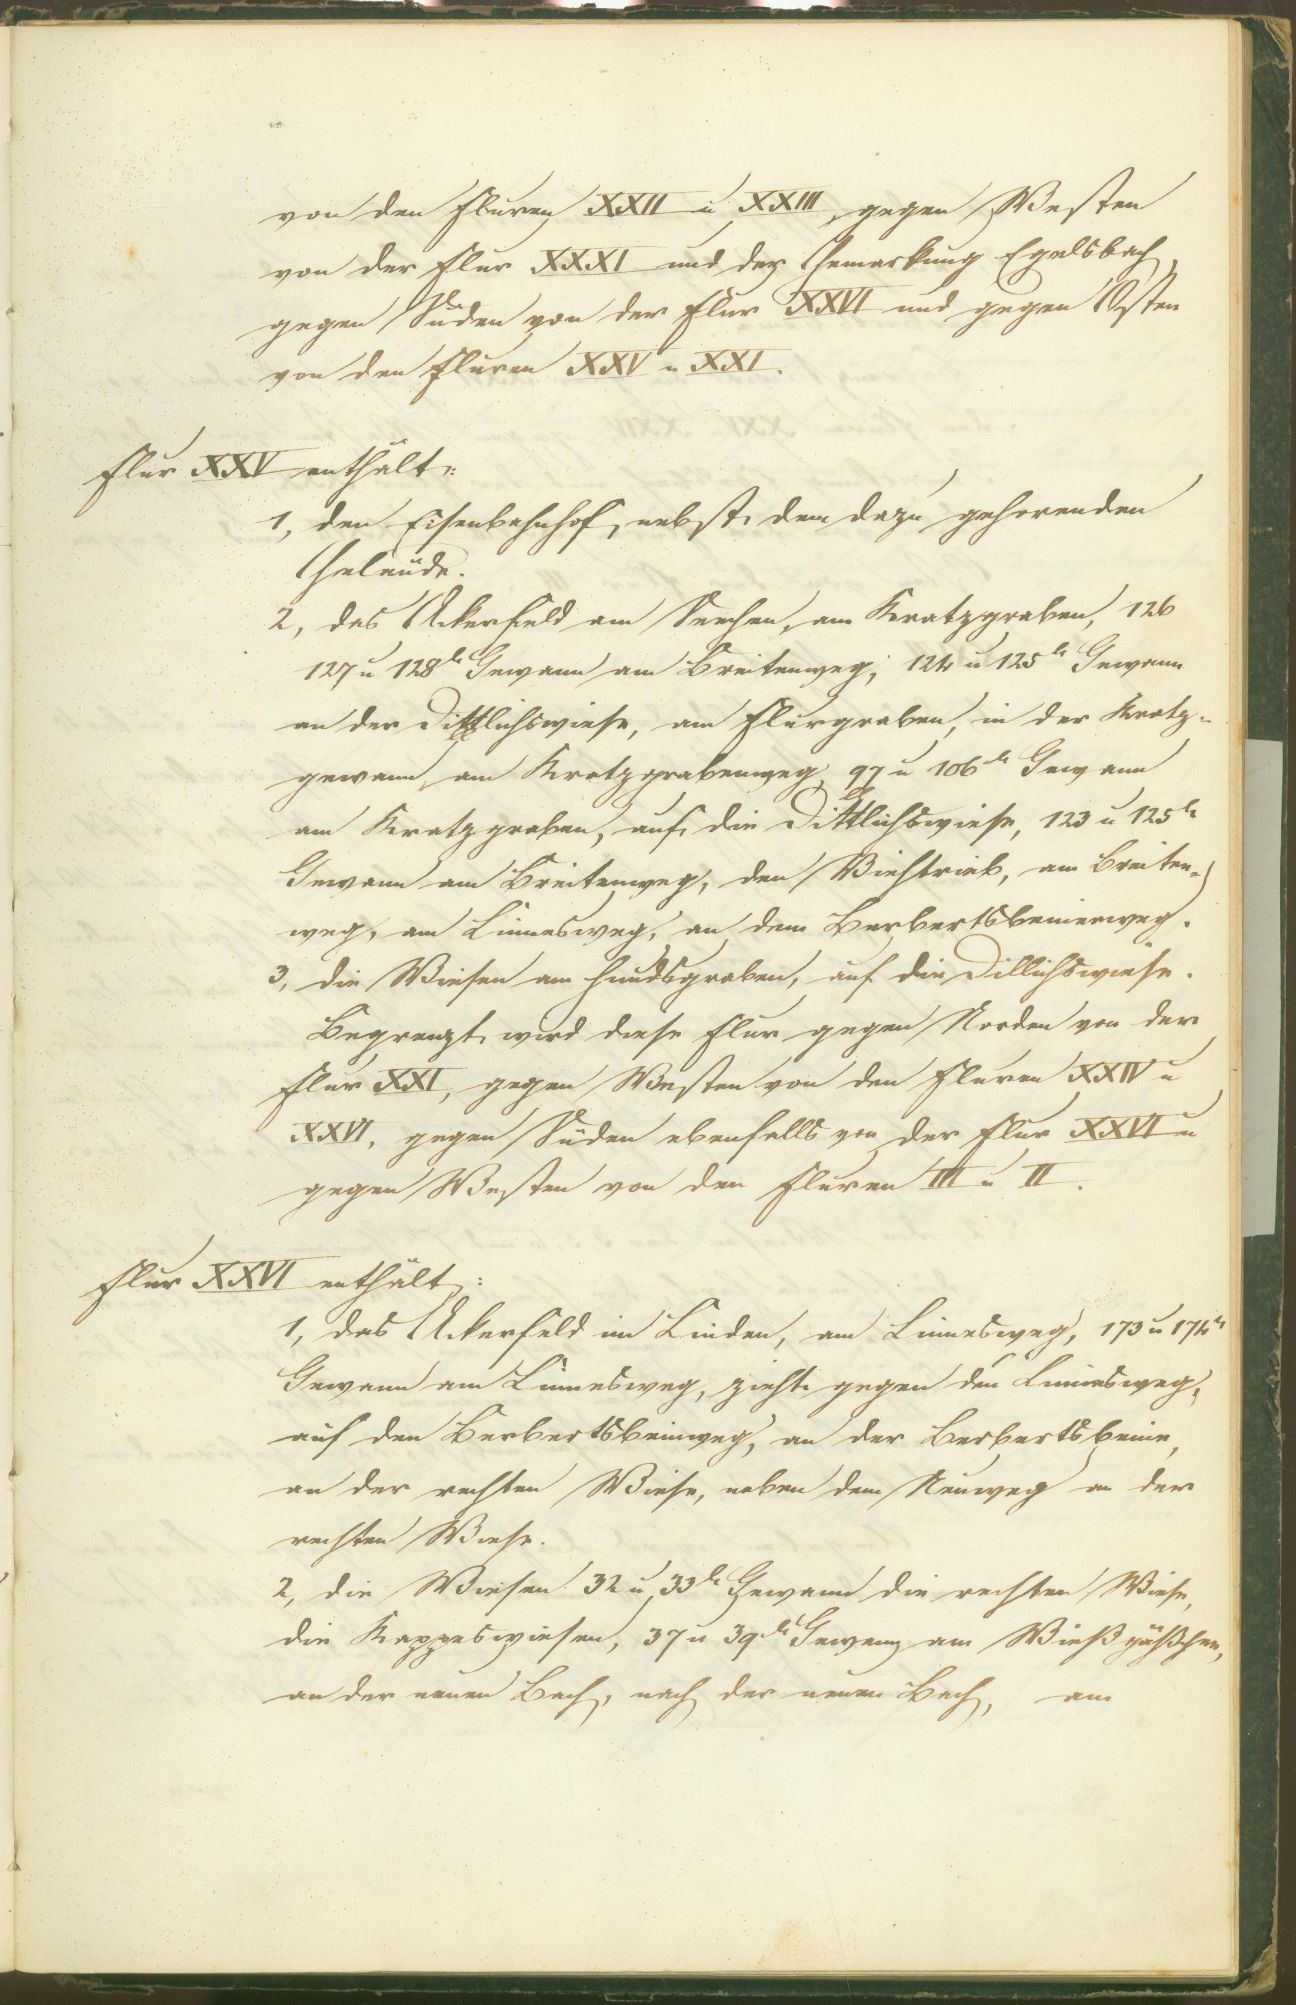 von den Fluren XXII u XXIII, gegen Westen
von der Flur XXXI und der Gemarkung Egelsbach,
gegen Süden von der Flur XXVI und gegen Osten
von den Fluren XXV u XXI.
Flur XXV enthält:
1, den Eisenbahnhof, nebst dem dazu gehörenden
Geländ.
2, das Ackerfeld am am Kratzgraben, 126
127 u 128te Gewann am Breitenweg, 124 u 125te Gewann
an der Dittlichswiese, am Flurgraben, in der Kratz-
gewann, am Kratzgrabenweg, 97 u 106te Gewann
am Kratzgraben, auf die Dittlichswiese, 123 u 125te
Gewann am Breitenweg, den Viehtrieb, am Breiten-
weg, am Linnesweg, an dem Berbertsbeinerweg.
3, die Wiesen am Hundsgraben, auf die Dillichswiese.
Begrenzt wird diese Flur gegen Norden von der
Flur XXI, gegen Westen von den Fluren XXIV u
XXVI, gegen Süden ebenfalls von der Flur XXVI u
gegen Westen von den Fluren III u II.
Flur XXVI enthält:
1, das Ackerfeld im Linden, am Linnesweg, 173 u 174te
Gewann am Linnesweg, zieht gegen den Linnesweg,
auf den Berbertsbeinweg, an der Berbertsbeine,
an der rechten Wiese, neben dem Neuweg an der
rechten Wiese.
2, die Wiesen 32 u 33te Gewann die rechten Wiese,
die Kappeswiesen, 37 u 39te Gewann am Wießgäßchen,
an der neuen Bach, nach der neuen Bach, am